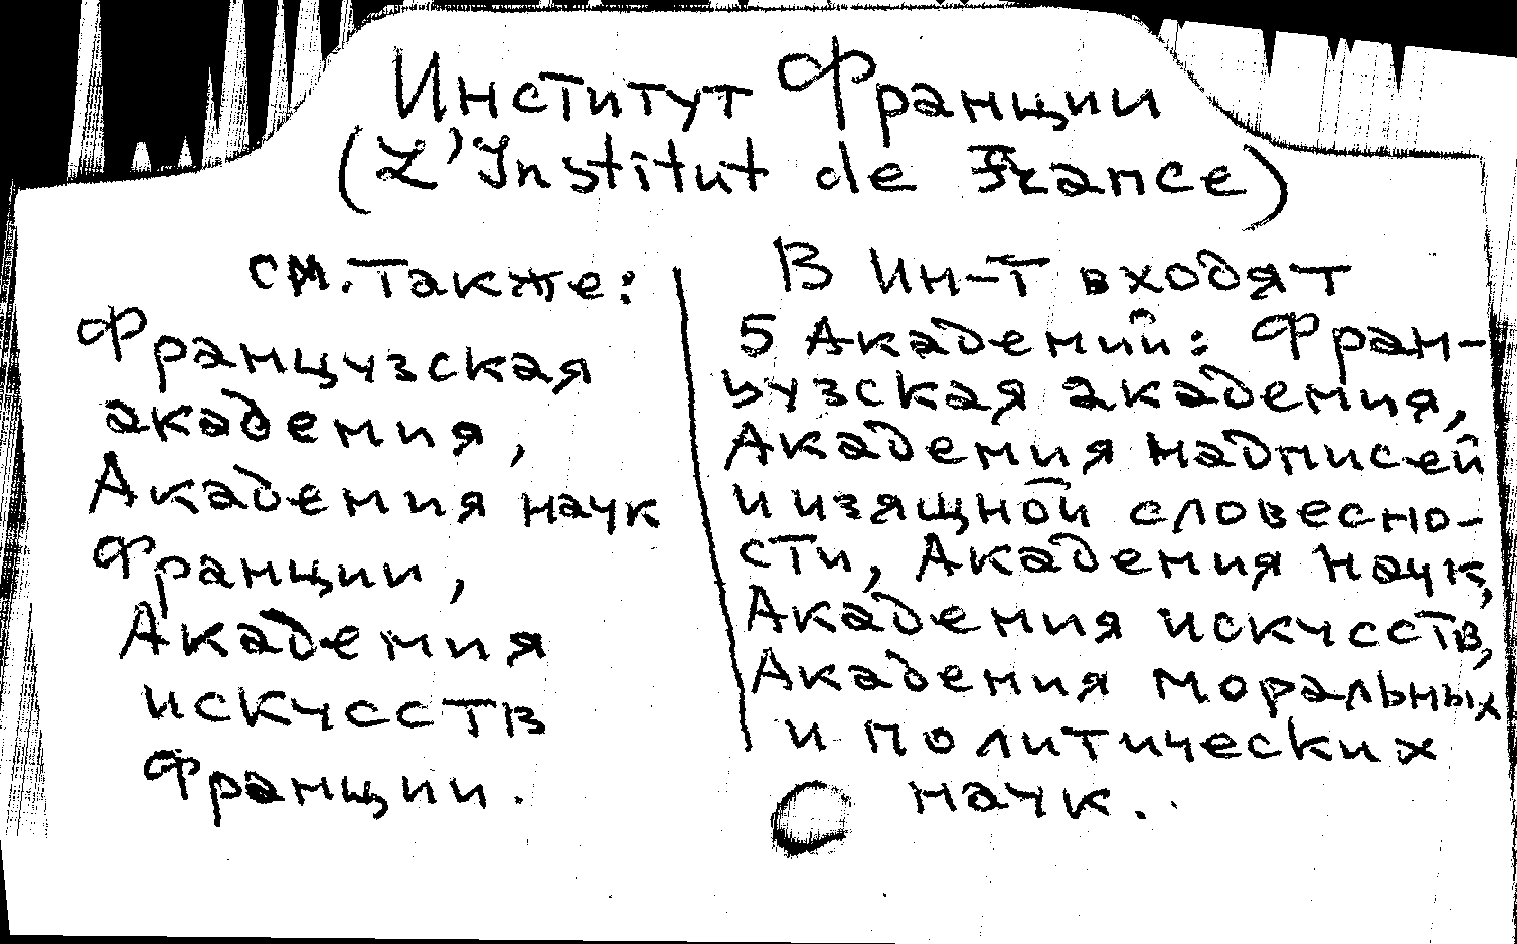 Институт Франции
(L'Institut de France)
см. также:
Французская
академия,
Академия наук
Франции,
Академия
искусств
Франции.
В Ин-т входят
5 Академий: Фран-
цузская академия,
Академия надписей
и изящной словесно-
сти, Академия наук,
Академия искусств,
Академия моральных
и политических
наук.